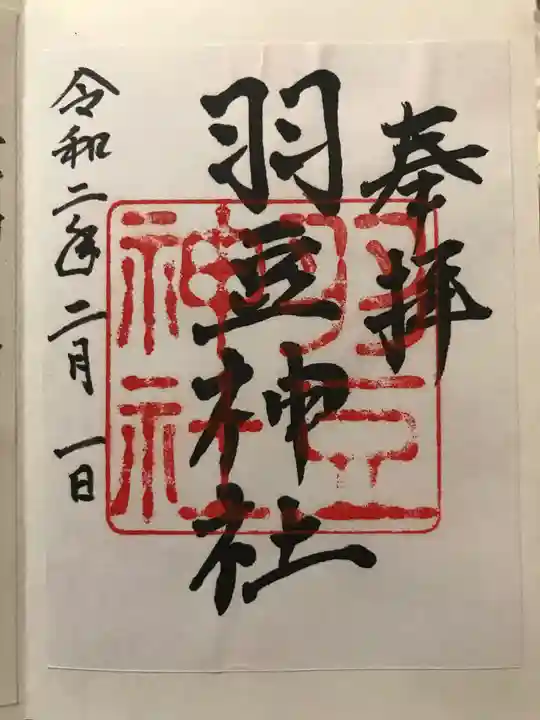 奉拝
羽豆神社
羽豆
神社
令和二年二月一日